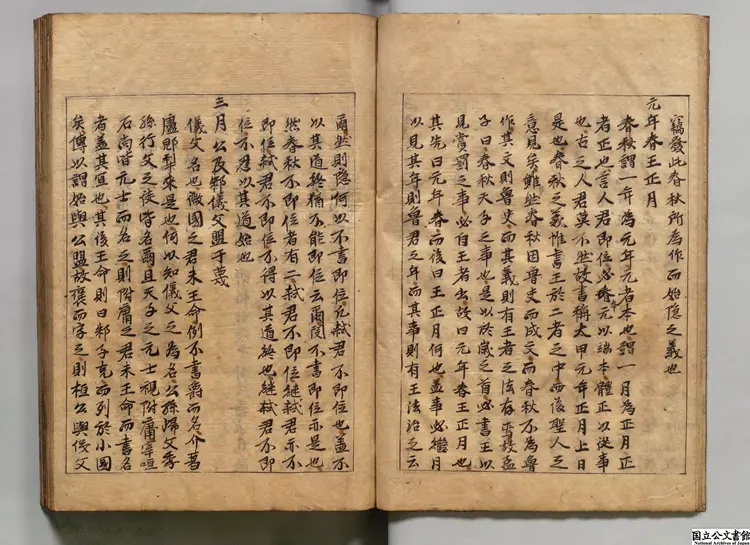 竊發此春秋所為作而始隱之義也
元年春王正月
春秋謂一年為元年元者本也謂一月為正月正
者正也言人君即位必體元以端本體正以從事
也古之人君莫不然故書稱太甲元年正月上日
是也春秋之義惟書王於二者之中而後聖人之
意見矣雖然春秋因魯史而成文而春秋不為魯
作其文則魯史而其義則有王者之法存焉故孟
子曰春秋天子之事也是以於歲之首必書王以
見賞罰之事必自王者出故曰元年春王正月也
其先曰元年春而後曰王正月何也蓋事必繼月
以見其年則魯君之年而其事則有王法治之云
爾然則隱何以不書即位凡弒君不即位也蓋不
以其道終猶不能即位云爾閔不書即位亦是也
然春秋不即位者有二弒君不即位繼弒君亦不
即位弒君不即位不得以其道終也繼弒君不即
位不忍以其道始也
三月公及邾儀父盟于蔑
儀父名也微國之君未王命例不書爵而名介葛
盧郳犁來是也何以知儀父之為名公孫歸父季
孫行父之徒皆名爾且天子之元士視附庸宰咺
石尚皆元士而名之則附庸之君未王命而書名
者蓋其宜也其後王命則曰邾子克而列於小國
矣傳以謂始與公盟故褒而字之則桓公與儀父
國立公文書館
National Archives of Japan